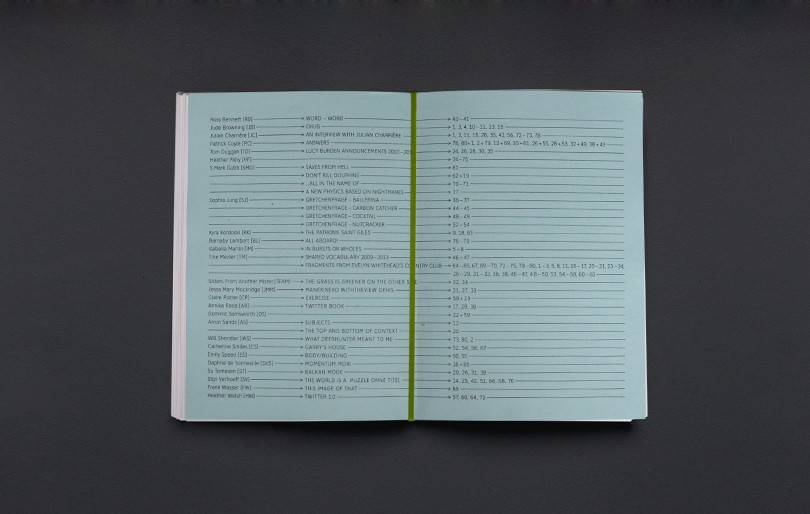 Ross Bennett [RB] → WORD – WORD → 40 – 41
Jude Browning [JB] → CHUG → 1, 3, 4, 10 – 11, 13, 15
Julian Charrière [JC] → AN INTERVIEW WITH JULIAN CHARRIÈRE → 1, 3, 11, 15, 26, 35, 43, 56, 72 – 73, 78
Patrick Coyle [PC] → ANSWERS
Tom Duggan [TD] → LUCY BURDEN ANNOUNCEMENTS → 24, 26, 28, 30, 35
Heather Fahy [HF] → 74 – 75
S Mark Gubb [SMG] → SAVES FROM HELL → 61
→ DON'T KILL DOLPHINS → 62 + 19
→ ...ALL IN THE NAME OF → 70 – 71
→ A NEW PHYSICS BASED ON NIGHTMARES → 77
Sophie Jung [SJ] → GRETCHENFRAGE – BALLERINA → 36 – 37
→ GRETCHENFRAGE – CARBON CATCHER → 44 – 45
→ GRETCHENFRAGE – COCKTAIL → 48 – 49
→ GRETCHENFRAGE – NUTCRACKER → 52 – 54
Kyra Kordoski [KK] → THE PATRONS: SAINT GILES → 9, 18, 63
Barnaby Lambert [BL] → ALL ABOARD! → 76 – 79
Isabella Martin [IM] → IN BURSTS OR WHOLES → 5 – 8
Elke Meyer [TM] → SHARED VOCABULARY 2009 – 2013 → 46 – 47
→ FRAGMENTS FROM EVELYN WHITEHEAD'S COUNTRY CLUB → 64 – 65, 67, 69 – 70, 72 – 75, 78 – 80, 1 – 3, 5, 8, 11, 16 – 17, 20 – 21, 23 – 24,
26 – 29, 31 – 32, 36, 38, 46 – 47, 49 – 50, 53, 54 – 58, 60 – 62
Sisters From Another Mister [SFAM] → THE GRASS IS GREENER ON THE OTHER → 32, 34
Jessy Mary Mockridge [JMM] → 21, 27, 33
Claire Potter [CP] → EXERCISE → 58 + 23
Annika Rodd [AR] → TWITTER BOOK → 17, 29, 38
Dominic Samsworth [DS] → 22 + 59
Arron Sands [AS] → SUBJECTS → 12
→ THE TOP AND BOTTOM OF CONTEXT → 20
Will Sheridan [WS] → WHAT DEERHUNTER MEANT TO ME → 73, 80, 2
Catherine Smiles [CS] → GARRY'S HOUSE → 52, 54, 56, 67
Emily Speed [ES] → BODY/BUILDING → 50, 55
Daphna de Sonneville [DdS] → MOMENTUM MORI → 16 – 65
Su Tomesen [ST] → BALKAN MODE → 20, 26, 31, 39
Stijn Verhoeff [SV] → THE WORLD IS A PUZZLE OHNE TITEL → 14, 25, 42, 51, 66, 68, 76
Frank Wasser [FW] → THIS IMAGE OF THAT → 68
Heather Welsh [HW] → TWITTER 1.0 → 57, 60, 64, 72